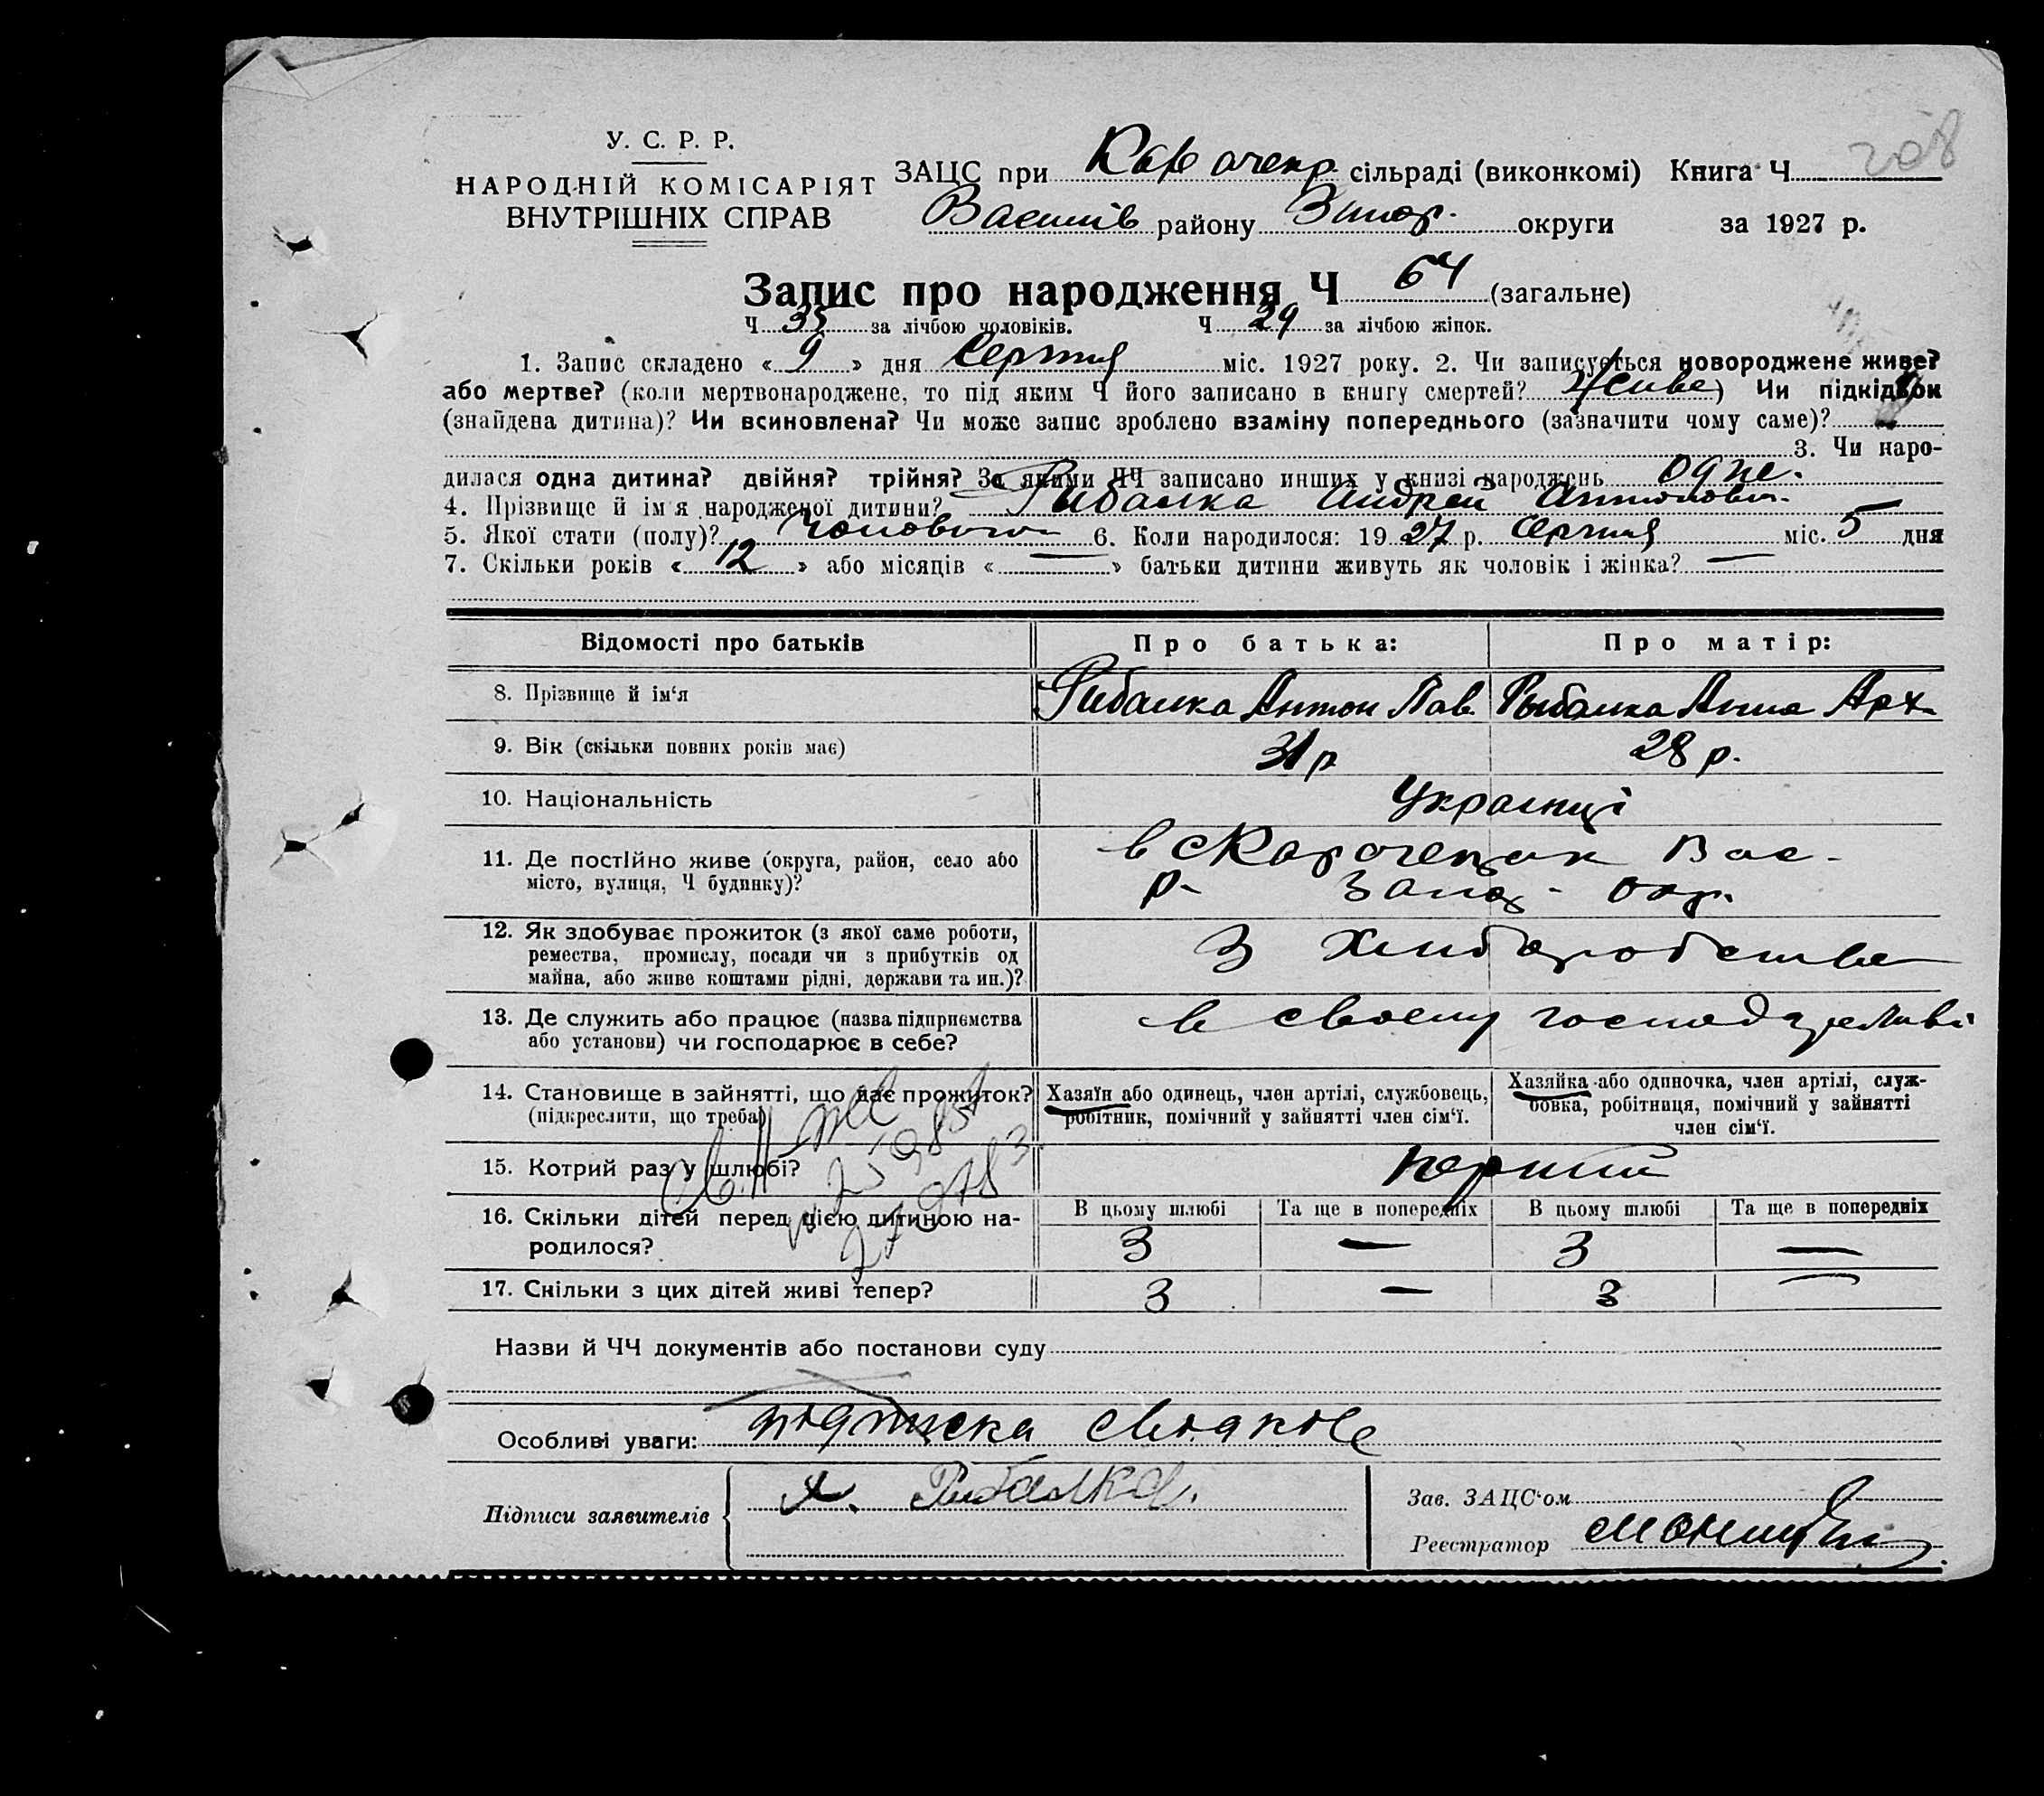 У. С. Р. Р.
НАРОДНІЙ КОМІСАРІЯТ
ВНУТРІШНІХ СПРАВ
ЗАЦС при сільраді (виконкомі) Книга Ч. 208
Василів району Запор. округи за 1927 р.
Запис про народження Ч 64 (загальне)
Ч 35 за лічбою чоловіків. Ч 29 за лічбою жінок.
1. Запис складено « 9 » дня Серпня міс. 1927 року. 2. Чи записується новороджене живе?
або мертве? (коли мертвонароджене, то під яким Ч його записано в книгу смертей? Живе) Чи підкідьок
(знайдена дитина)? Чи всиновлена? Чи може запис зроблено взаміну попереднього (зазначити чому саме)?
3. Чи наро-
дилася одна дитина? двійня? трійня? За якими ЧЧ записано инших у книзі народжень одне.
4. Прізвище й ім'я народженої дитини? Рибалка Андрей Антонович.
5. Якої стати (полу)? чоловичого 6. Коли народилося: 19 27 р. серпня міс. 5 дня
7. Скільки років « 12 » або місяців « — » батьки дитини живуть як чоловік і жінка? —
Відомості про батьків Про батька: Про матір:
8. Прізвище й ім'я Рибалка Антон Пав. Рыбалка Анна Арх.
9. Вік (скільки повних років має) 31 р 28 р.
10. Національність Українці
11. Де постійно живе (округа, район, село або в с Карачекрак Вас-
місто, вулиця, Ч будинку)? р- Запор- окр.
12. Як здобуває прожиток (з якої саме роботи,
ремества, промислу, посади чи з прибутків од З Хлиборобства
майна, або живе коштами рідні, держави та ин.)?
13. Де служить або працює (назва підприємства в своему господарстві
або установи) чи господарює в себе?
14. Становище в зайнятті, що дає прожиток? Хазяїн або одинець, член артілі, службовець, Хазяйка або одиночка, член артілі, служ-
(підкреслити, що треба) робітник, помічний у зайнятті член сім'ї. бовка, робітниця, помічний у зайнятті
член сім'ї.
15. Котрий раз у шлюбі? перший
16. Скільки дітей перед цією дитиною на- В цьому шлюбі Та ще в попередніх В цьому шлюбі Та ще в попередніх
родилося? 3 — 3 —
17. Скільки з цих дітей живі тепер? 3 — 3 —
Назви й ЧЧ документів або постанови суду
Особливі уваги: підписка
Підписи заявителів А. Рибалка.
Зав. ЗАЦС'ом
Реєстратор